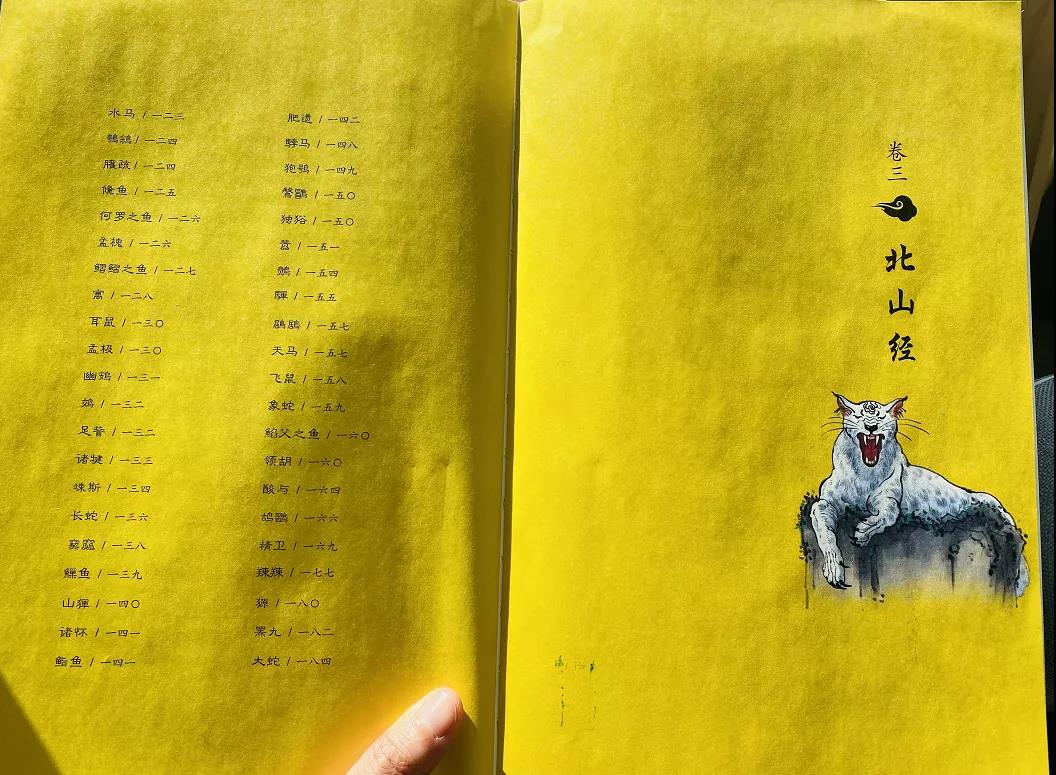 水马 / 一二三
鵸鵌 / 一二四
䑏疏 / 一二四
鯈鱼 / 一二五
何罗之鱼 / 一二六
孟槐 / 一二六
鳛鳛之鱼 / 一二七
寓 / 一二八
耳鼠 / 一三〇
孟极 / 一三〇
幽鴳 / 一三一
鵁 / 一三二
足訾 / 一三二
诸犍 / 一三三
竦斯 / 一三四
长蛇 / 一三六
窫窳 / 一三八
鱲鱼 / 一三九
山𤟤 / 一四〇
诸怀 / 一四一
鮨鱼 / 一四一
肥遗 / 一四二
䮀马 / 一四八
狍鸮 / 一四九
鷔鶥 / 一五〇
独𤞞 / 一五〇
嚣 / 一五一
鷾 / 一五四
驒 / 一五五
鶌鶋 / 一五七
天马 / 一五七
飞鼠 / 一五八
象蛇 / 一五九
䱤父之鱼 / 一六〇
领胡 / 一六〇
酸与 / 一六四
鸪鸐 / 一六六
精卫 / 一六九
辣辣 / 一七七
獂 / 一八〇
罴九 / 一八二
大蛇 / 一八四
卷三
北山经